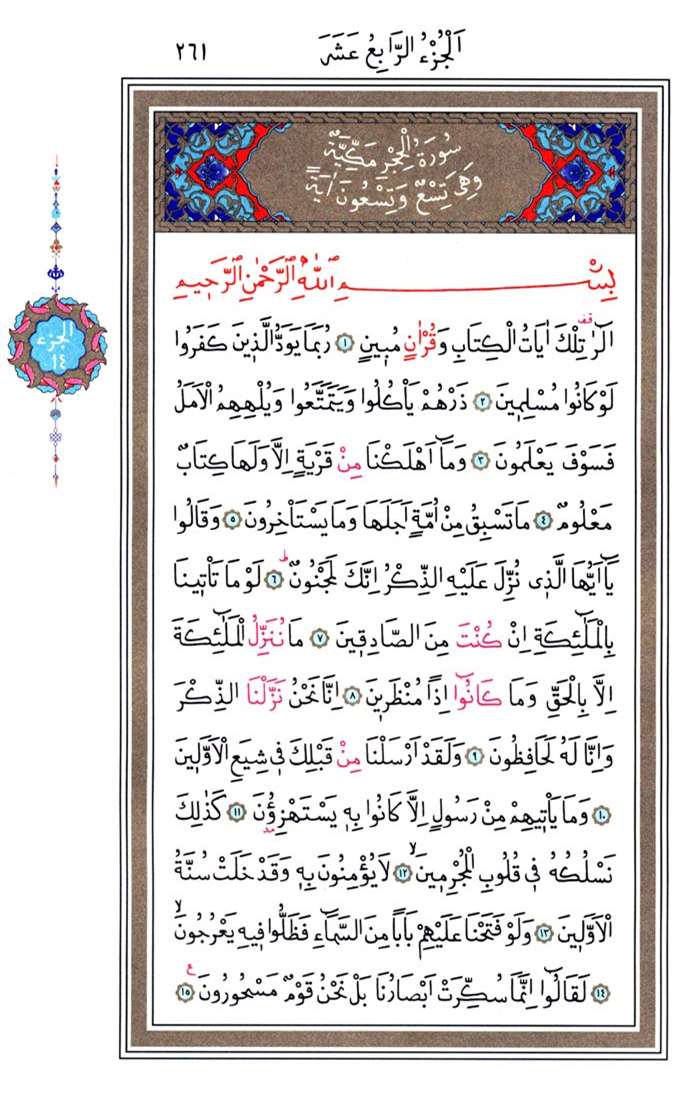 اَلْجُزْءُ الرَّابِعُ عَشَرَ
٢٦١
سُورَةُ الْحِجْرِ مَكِّيَّةٌ
وَهِىَ تِسْعٌ وَتِسْعُونَ اٰيَةً
بِسْــــــــــمِ اللّٰهِ الرَّحْمٰنِ الرَّحٖيمِ
الجزء
١٤
الٓرٰ قف تِلْكَ اٰيَاتُ الْكِتَابِ وَقُرْاٰنٍ مُبٖينٍ ١ رُبَمَا يَوَدُّ الَّذٖينَ كَفَرُوا
لَوْ كَانُوا مُسْلِمٖينَ ٢ ذَرْهُمْ يَأْكُلُوا وَيَتَمَتَّعُوا وَيُلْهِهِمُ الْاَمَلُ
فَسَوْفَ يَعْلَمُونَ ٣ وَمَٓا اَهْلَكْنَا مِنْ قَرْيَةٍ اِلَّا وَلَهَا كِتَابٌ
مَعْلُومٌ ٤ مَا تَسْبِقُ مِنْ اُمَّةٍ اَجَلَهَا وَمَا يَسْتَأْخِرُونَ ٥ وَقَالُوا
يَٓا اَيُّهَا الَّذٖى نُزِّلَ عَلَيْهِ الذِّكْرُ اِنَّكَ لَمَجْنُونٌ ط ٦ لَوْ مَا تَأْتٖينَا
بِالْمَلٰٓئِكَةِ اِنْ كُنْتَ مِنَ الصَّادِقٖينَ ٧ مَا نُنَزِّلُ الْمَلٰٓئِكَةَ
اِلَّا بِالْحَقِّ وَمَا كَانُٓوا اِذًا مُنْظَرٖينَ ٨ اِنَّا نَحْنُ نَزَّلْنَا الذِّكْرَ
وَاِنَّا لَهُ لَحَافِظُونَ ٩ وَلَقَدْ اَرْسَلْنَا مِنْ قَبْلِكَ فٖى شِيَعِ الْاَوَّلٖينَ
١٠ وَمَا يَأْتٖيهِمْ مِنْ رَسُولٍ اِلَّا كَانُوا بِهٖ يَسْتَهْزِؤُ۫نَ ١١ كَذٰلِكَ
نَسْلُكُهُ فٖى قُلُوبِ الْمُجْرِمٖينَ لا ١٢ لَا يُؤْمِنُونَ بِهٖ وَقَدْ خَلَتْ سُنَّةُ
الْاَوَّلٖينَ ١٣ وَلَوْ فَتَحْنَا عَلَيْهِمْ بَابًا مِنَ السَّمَٓاءِ فَظَلُّوا فٖيهِ يَعْرُجُونَ لا
١٤ لَقَالُٓوا اِنَّمَا سُكِّرَتْ اَبْصَارُنَا بَلْ نَحْنُ قَوْمٌ مَسْحُورُونَ ع ١٥